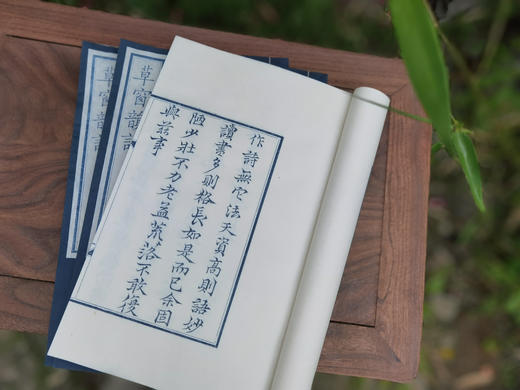 作詩無它法天資高則語妙
讀書多則格長如是而已余固
陋少壯不力老益荒落不敢復
與茲事
草窗韻語
草窗韻語